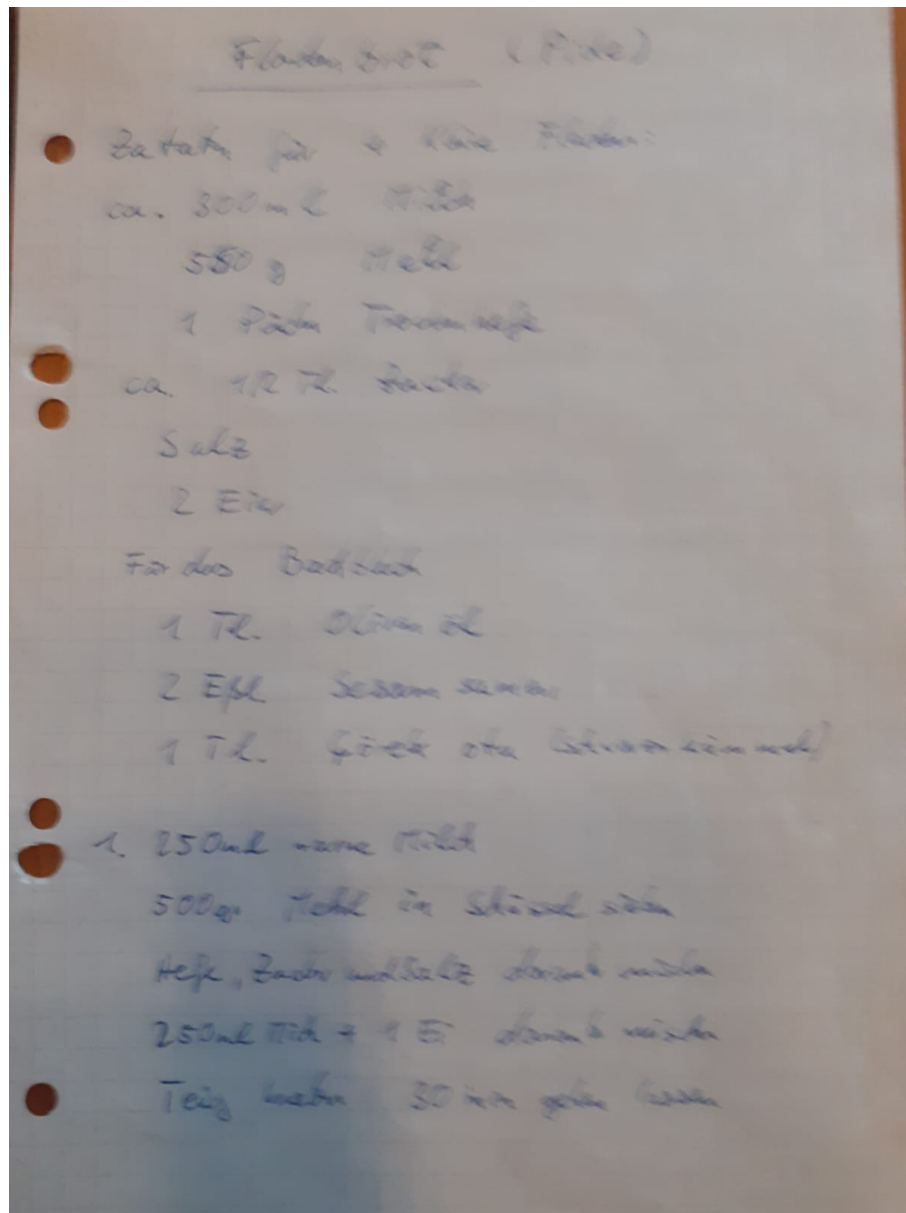 Fladenbrot (Pide)
Zutaten für 4 kleine Fladen:
ca. 300ml Milch
550 g Mehl
1 Päckn Trockenhefe
ca. 1/2 Tl. Zucker
Salz
2 Eier
Für das Backblech
1 Tl. Olivenöl
2 Eßl. Sesamsamen
1 Tl.
1. 250ml warme Milch
500g Mehl in Schüssel sieben
Hefe, Zucker und Salz darunter mischen
250ml Milch + 1 Ei darunter mischen
Teig kneten 30 min gehen lassen